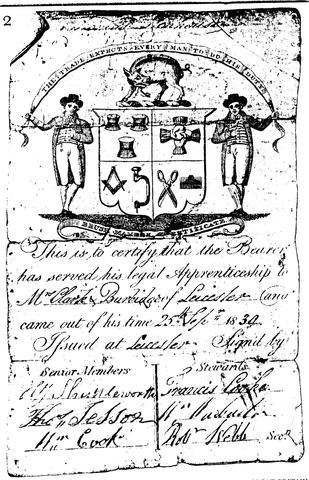 2
THE TRADE EXPECTS EVERY MAN TO DO HIS DUTY
BRUSH MAKERS CERTIFICATE
This is to certify that the Bearer
has served his legal Apprenticeship to
Mr Clark & Burbidge of Leicester (and
came out of his time 25th Sepr 1839
Issued at Leicester Sign'd by
Senior Members
Stewards
Francis Cooke
Thos Sesson
Wm
Wm Cook
Robt Webb Secy